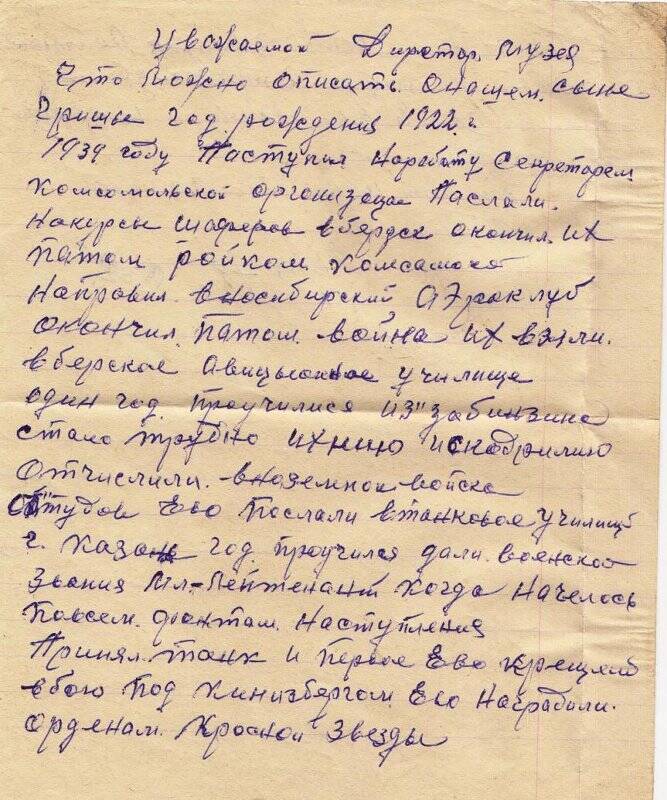 Уважаемой Директор. Музея
Что можно описать. Онашем. сыне
Грише год рождения 1922. г.
1939 году Паступил Наработу Секретарем
Комсомольской организацае Паслали.
Накурсы шоферов вбердск окончил. их
патом ройком. Комсамола
Направил. вносибирский Аэроклуб
окончил. патом. война их взяли.
вберское Авицыонное училище
один год. проучилися из"забинзина
стало трудно ихнию искадрилию
отчислили. вноземнои войска
От"тудов Ево Послали втанковое училище
г. Казань год проучился дали. воянской
Звания Мл-Лентенант Когда Начелось
Повсем. фронтам. Наступления
Принял. танк и первое Ево крещение
вбою под Кинизбергом. Его Наградили.
орденам. Красной Звезды